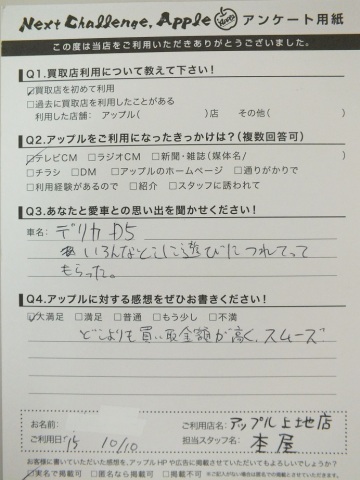 Next Challenge, Apple アンケート用紙
この度は当店をご利用いただきありがとうございました。
Q1.買取店利用について教えて下さい!
☑買取店を初めて利用
□過去に買取店を利用したことがある
利用した店舗: アップル( )店 その他( )
Q2.アップルをご利用になったきっかけは?(複数回答可)
☑テレビCM □ラジオCM □新聞・雑誌(媒体名/ )
□チラシ □DM □アップルのホームページ □通りがかりで
□利用経験があるので □紹介 □スタッフに誘われて
Q3.あなたと愛車との思い出を聞かせください!
車名: デリカ D5
いろんなとこに遊びにつれてって
もらった。
Q4.アップルに対する感想をぜひお書きください!
☑大満足 □満足 □普通 □もう少し □不満
どこよりも買い取金額が高く、スムーズ
お名前:
ご利用店名: アップル上地店
ご利用日: '15 10/10
担当スタッフ名: 本屋
お客様に書いていただいた感想を、アップルHPや広告に掲載させていただいてもよろしいでしょうか?
☑実名で掲載可 □匿名なら掲載可 □掲載不可